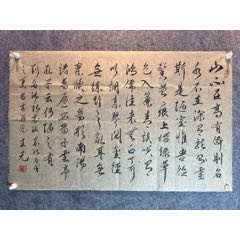 山不在高有仙則名
水不在深有龍則靈
斯是陋室惟吾德
馨苔痕上階綠草
色入簾青談笑有
鴻儒往來無白丁可
以調素琴閱金經
無絲竹之亂耳無
案牘之勞形南陽
諸葛廬西蜀子雲亭
孔子云何陋之有